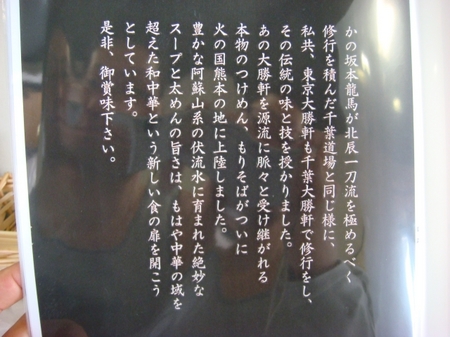 かの坂本龍馬が北辰一刀流を極めるべく
修行を積んだ千葉道場と同じ様に、
私共、東京大勝軒も千葉大勝軒で修行をし、
その伝統の味と技を授かりました。
あの大勝軒を源流に脈々と受け継がれる
本物のつけめん、もりそばがついに
火の国熊本の地に上陸しました。
豊かな阿蘇山系の伏流水に育まれた絶妙な
スープと太めんの旨さは、もはや中華の域を
超えた和中華という新しい食の扉を開こう
としています。
是非、御賞味下さい。